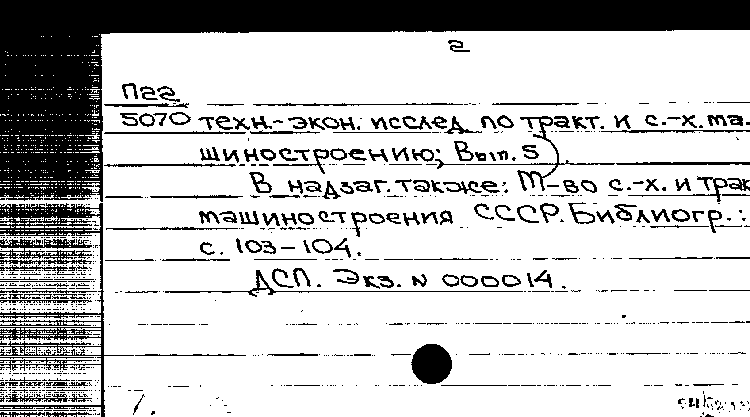 2
П22
5070 техн.-экон. исслед. по тракт. и с.-х. ма-
шиностроению; Вып. 5).
В надзаг. также: М-во с.-х. и трак
машиностроения СССР. Библиогр.:
с. 103-104.
ДСП. Экз. N 000014.